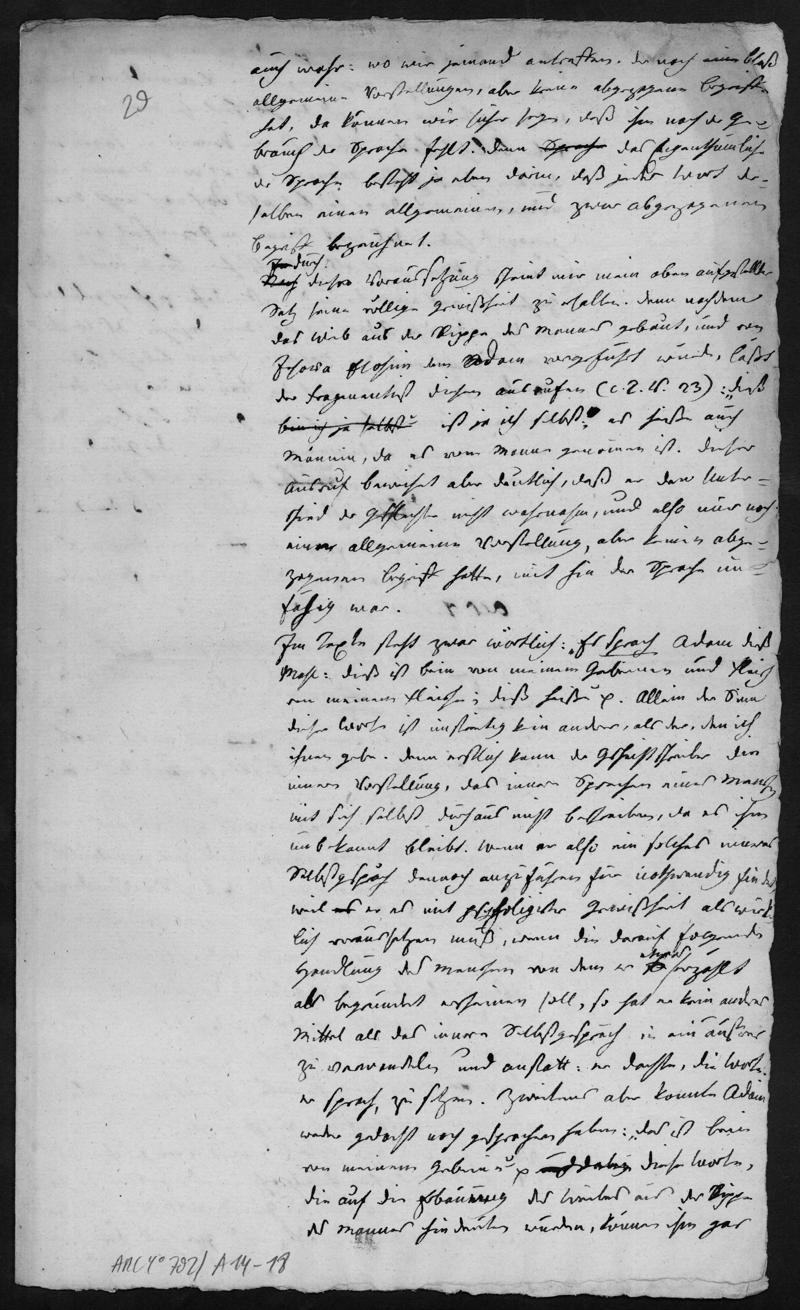 29
auch wahr: wo wir jemand antreffen, der noch bloß
allgemeine Vorstellungen, aber keine abgezogenen Begriffe
hat, da können wir sicher sagen, daß ihm noch der Ge-
brauch der Sprache fehlt. Denn Sprache das Eigenthümliche
der Sprache besteht ja eben darin, daß jedes Wort der-
selben einen allgemeinen, und zwar abgezogenen
Begriff bezeichnet.
durch
Nach diese Voraussetzung scheint mir mein oben aufgestellter
Satz seine völlige Gewißheit zu erhalten. Denn nachdem
das Weib aus der Rippe des Mannes gebaut, und von
Jehova Elohim dem Adam vorgeführt wurde, läßt
der Fragmentist diesen ausrufen (c. 2. V. 23): „dieß
bin ich ja selbst“ ist ja ich selbst! es heiße auch
Männin, da es vom Manne genommen ist. Dieser
Ausruf beweiset aber deutlich, daß er den Unter-
schied der Geschlechter nicht wahrnahm, und also nur noch
eine allgemeine Vorstellung, aber keinen abge-
zogenen Begriff hatte, mithin der Sprache un-
fähig war.
Im Texte steht zwar wörtlich: „Es sprach Adam dieß
Mahl: dieß ist bein von meinem Gebeine und Fleisch
von meinem Fleische; dieß heiße p. Allein der Sinn
dieser Worte ist unstreitig kein anderer, als der, den ich
ihnen gebe. Denn erstlich kann der Geschichtschreiber die
innere Vorstellung, das innere Sprechen eines Menschen
mit sich selbst durchaus nicht beschreiben, da es ihm
unbekannt bleibt. Wenn er also ein solches inneres
Selbstgespräch dennoch anzuführen für nothwendig findet
weil er es mit psychologischer Gewißheit als wirk-
lich voraussetzen muß, wenn die darauf folgende
etwas
Handlung des Menschen von dem er erzählt
als begründet erscheinen soll, so hat er kein anderes
Mittel als das innere Selbstgespräch in ein äußeres
zu verwandeln und anstatt: er dachte, die Worte:
er sprach, zu setzen. Zweitens aber konnte Adam
weder gedacht noch gesprochen haben: „das ist bein
von meinem Gebeine“ p diese Worte,
die auf die Erbauung des Weibes aus der Rippe
des Mannes hindeuten würden, können ihm gar
AMC 4° 702/ A 14-18